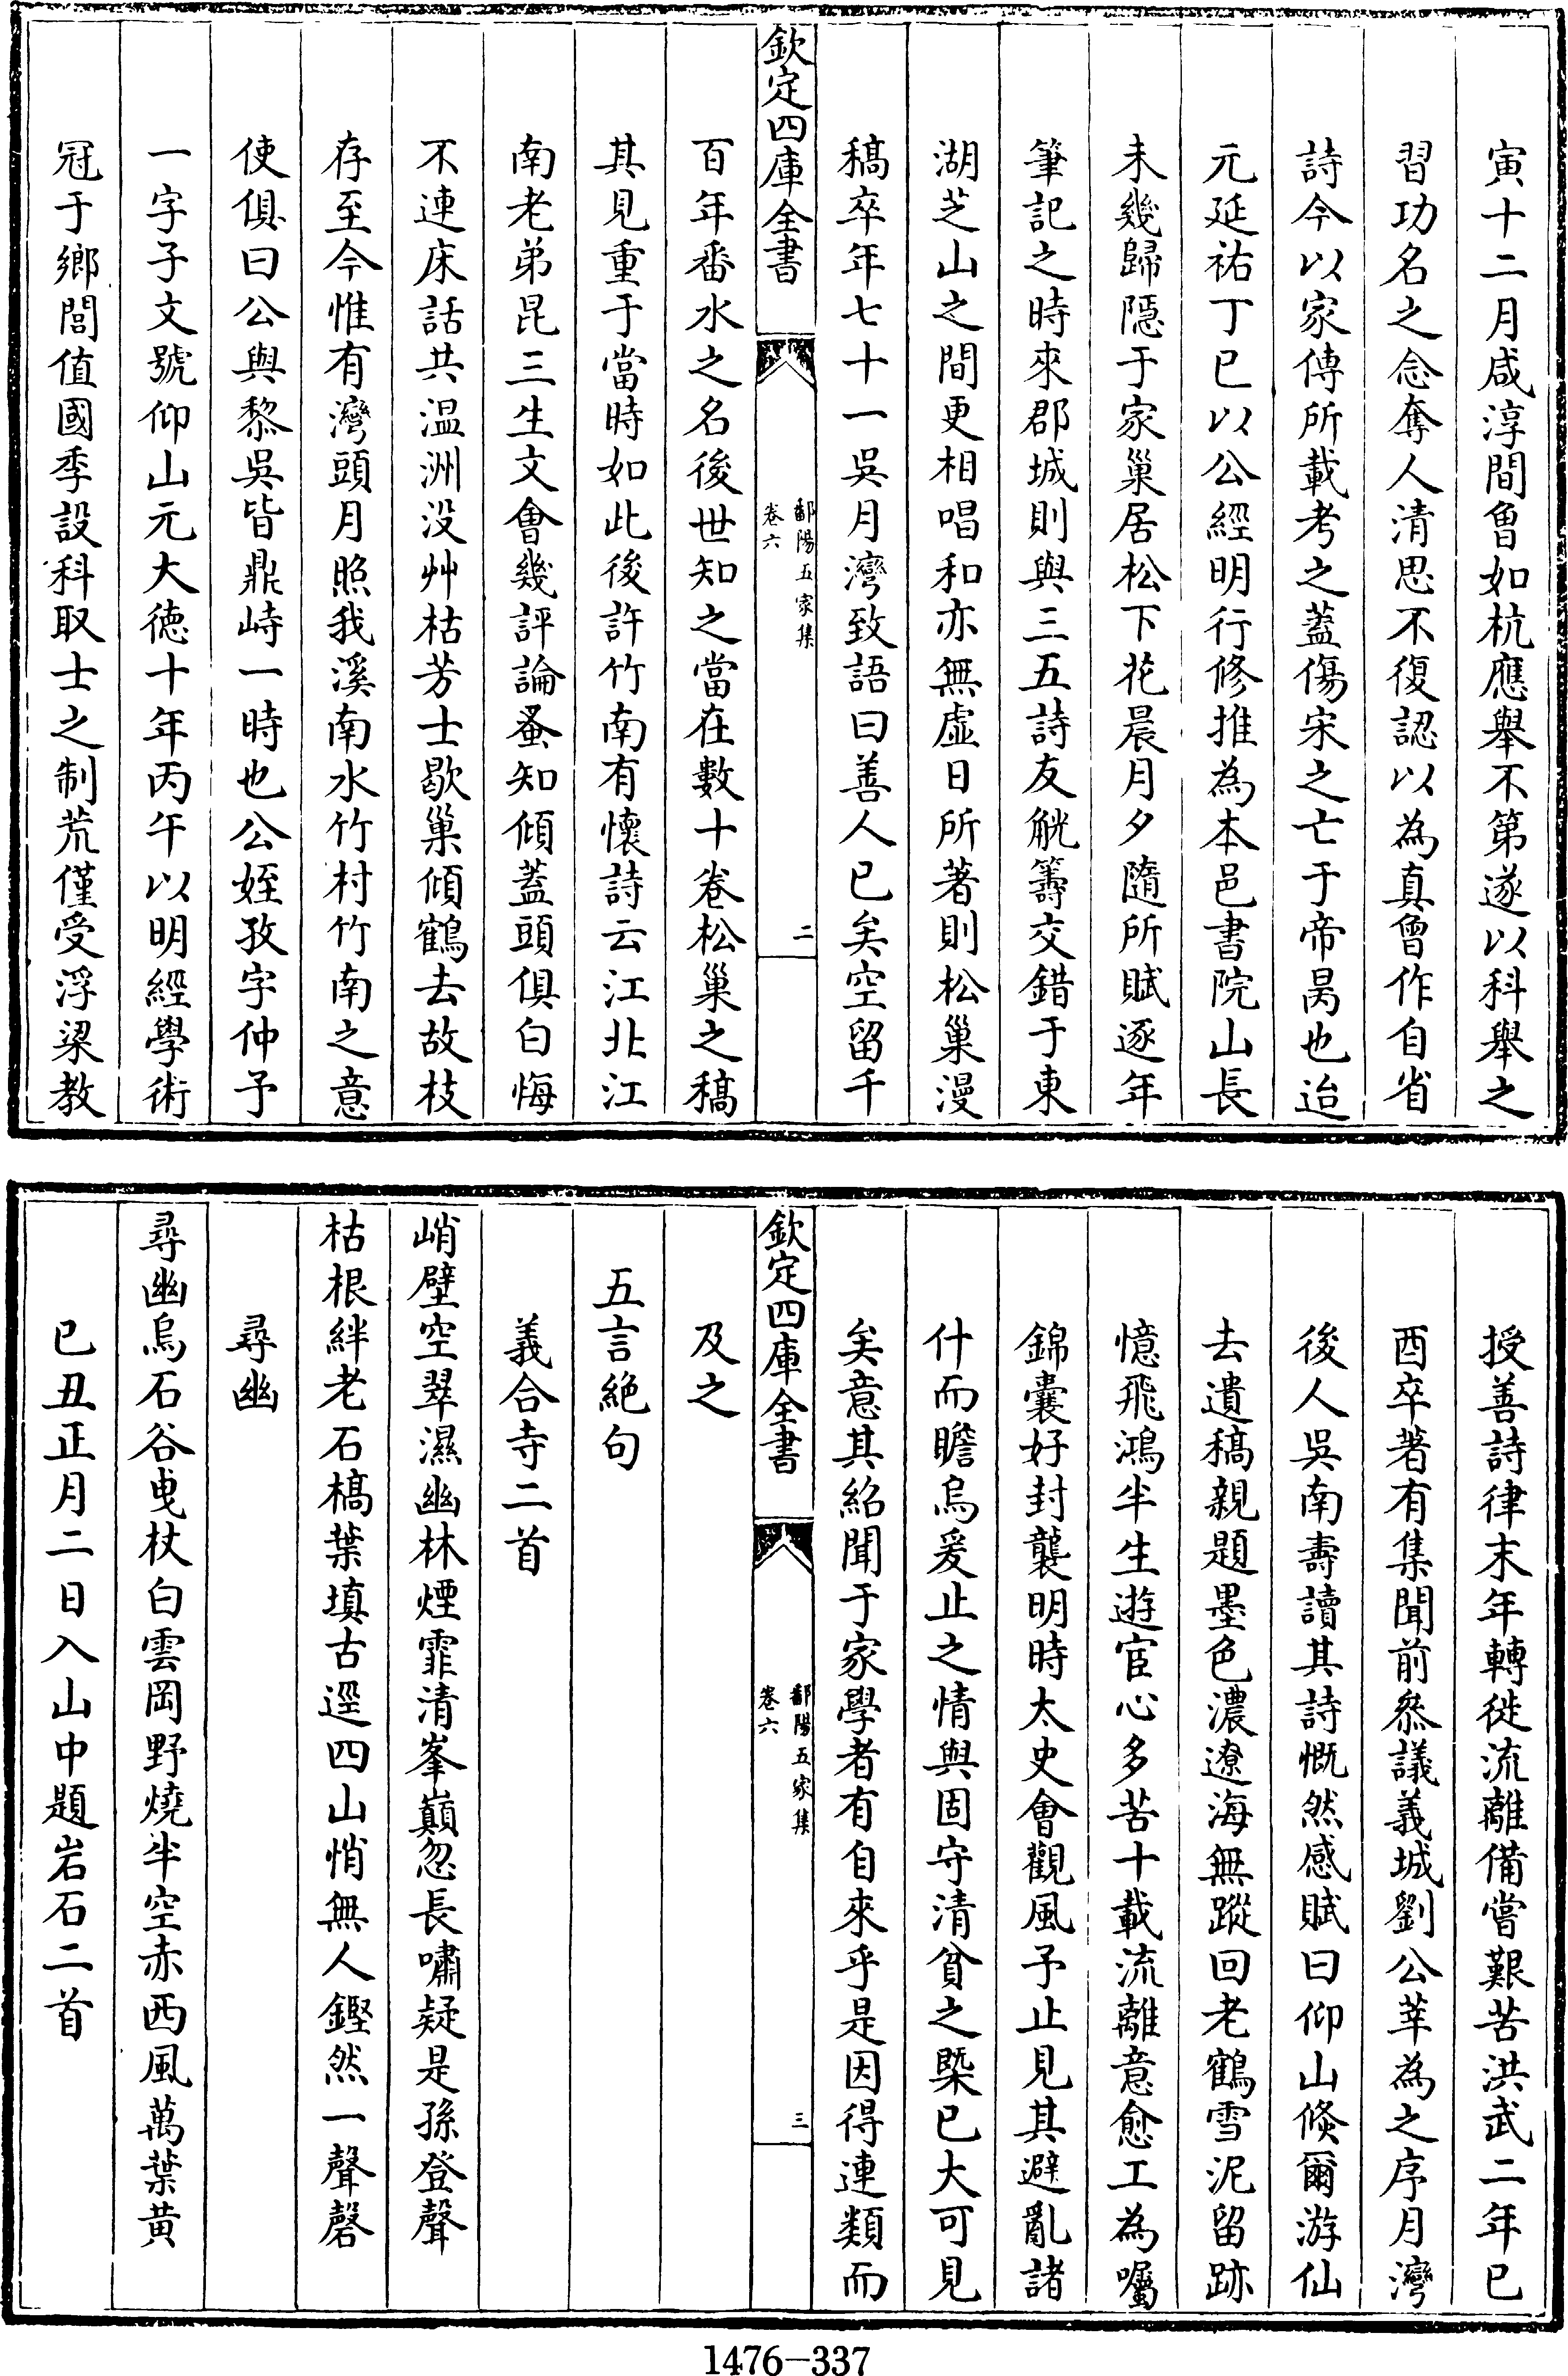 寅十二月咸淳間曾如杭應舉不第遂以科舉之
習功名之念奪人清思不復認以為真曾作自省
詩今以家傳所載考之蓋傷宋之亡于帝昺也迨
元延祐丁巳以公經明行修推為本邑書院山長
未幾歸隱于家巢居松下花晨月夕隨所賦逐年
筆記之時來郡城則與三五詩友觥籌交錯于東
湖芝山之間更相唱和亦無虛日所著則松巢漫
稿卒年七十一吳月灣致語曰善人已矣空留千
欽定四庫全書
鄱陽五家集
卷六
二
百年番水之名後世知之當在數十卷松巢之稿
其見重于當時如此後許竹南有懷詩云江北江
南老弟昆三生文會幾評論蚤知傾蓋頭俱白悔
不連床話共溫洲没艸枯芳士歇巢傾鶴去故枝
存至今惟有灣頭月照我溪南水竹村竹南之意
使俱曰公與黎吳皆鼎峙一時也公姪孜字仲予
一字子文號仰山元大徳十年丙午以明經學術
冠于鄉閭值國季設科取士之制荒僅受浮梁教
授善詩律末年轉徙流離備嘗艱苦洪武二年已
酉卒著有集聞前叅議義城劉公莘為之序月灣
後人吳南壽讀其詩慨然感賦曰仰山倏爾游仙
去遺稿親題墨色濃遼海無蹤回老鶴雪泥留跡
憶飛鴻半生遊宦心多苦十載流離意愈工為囑
錦囊好封襲明時太史會觀風予止見其避亂諸
什而瞻烏爰止之情與固守清貧之槩已大可見
矣意其紹聞于家學者有自來乎是因得連類而
欽定四庫全書
鄱陽五家集
卷六
三
及之
五言絕句
義合寺二首
峭壁空翠濕幽林煙霏清峯巔忽長嘯疑是孫登聲
枯根絆老石槁葉填古逕四山悄無人鏗然一聲磬
尋幽
尋幽烏石谷曵杖白雲岡野燒半空赤西風萬葉黄
已丑正月二日入山中題岩石二首
1476-337